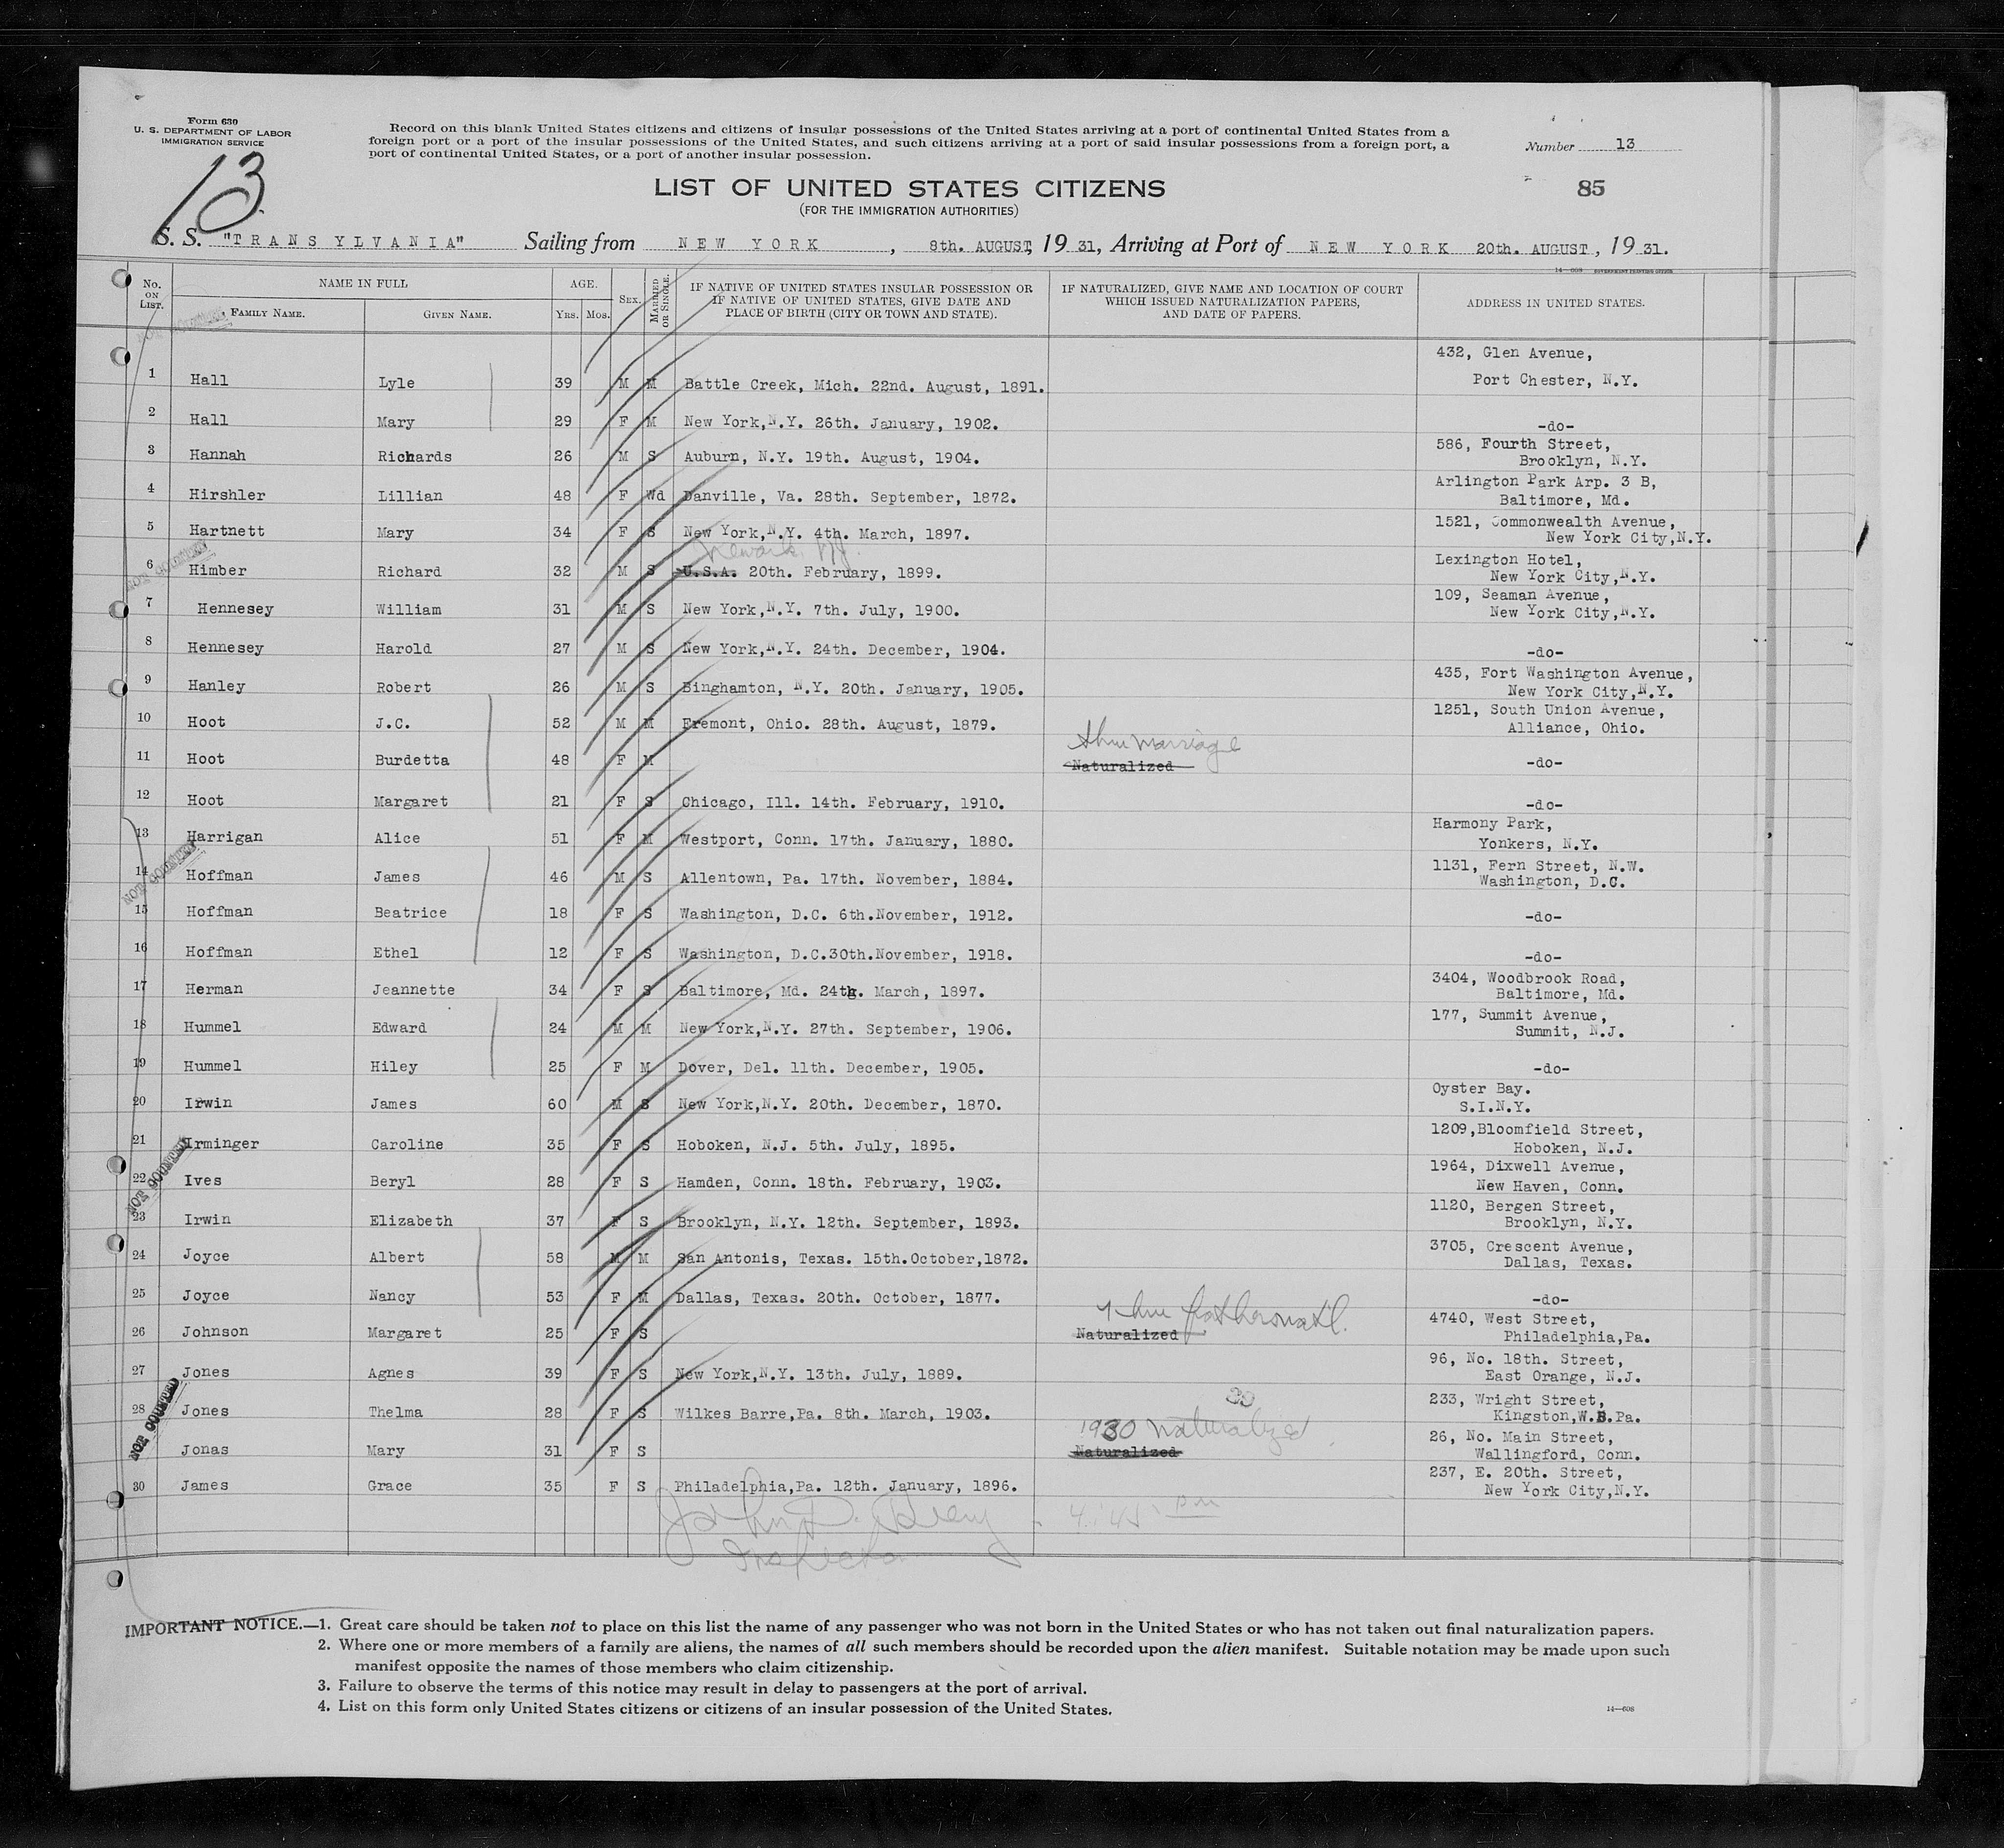 Form 630
U. S. DEPARTMENT OF LABOR
IMMIGRATION SERVICE
13
Record on this blank United States citizens and citizens of insular possessions of the United States arriving at a port of continental United States from a
foreign port or a port of the insular possessions of the United States, and such citizens arriving at a port of said insular possessions from a foreign port, a
port of continental United States, or a port of another insular possession.
Number 13
LIST OF UNITED STATES CITIZENS
(FOR THE IMMIGRATION AUTHORITIES)
85
S. S. "TRANSYLVANIA" Sailing from NEW YORK, 8th. AUGUST, 1931, Arriving at Port of NEW YORK 20th. AUGUST, 1931.
14—608 GOVERNMENT PRINTING OFFICE
No. ON LIST. NAME IN FULL FAMILY NAME. GIVEN NAME. AGE. Yrs. Mos. SEX. MARRIED OR SINGLE. IF NATIVE OF UNITED STATES INSULAR POSSESSION OR IF NATIVE OF UNITED STATES, GIVE DATE AND PLACE OF BIRTH (CITY OR TOWN AND STATE). IF NATURALIZED, GIVE NAME AND LOCATION OF COURT WHICH ISSUED NATURALIZATION PAPERS, AND DATE OF PAPERS. ADDRESS IN UNITED STATES.
NOT COUNTED
432, Glen Avenue,
1 Hall Lyle 39 M M Battle Creek, Mich. 22nd. August, 1891. Port Chester, N.Y.
2 Hall Mary 29 F M New York,N.Y. 26th. January, 1902. -do-
586, Fourth Street,
3 Hannah Richards 26 M S Auburn, N.Y. 19th. August, 1904. Brooklyn, N.Y.
Arlington Park Arp. 3 B,
4 Hirshler Lillian 48 F Wd Danville, Va. 28th. September, 1872. Baltimore, Md.
1521, Commonwealth Avenue,
5 Hartnett Mary 34 F S New York,N.Y. 4th. March, 1897. New York City,N.Y.
Newark NJ.
NOT COUNTED
Lexington Hotel,
6 Himber Richard 32 M S U.S.A. 20th. February, 1899. New York City,N.Y.
109, Seaman Avenue,
7 Hennesey William 31 M S New York,N.Y. 7th. July, 1900. New York City,N.Y.
8 Hennesey Harold 27 M S New York,N.Y. 24th. December, 1904. -do-
435, Fort Washington Avenue,
9 Hanley Robert 26 M S Binghamton, N.Y. 20th. January, 1905. New York City,N.Y.
1251, South Union Avenue,
10 Hoot J.C. 52 M M Fremont, Ohio. 28th. August, 1879. Alliance, Ohio.
thru marriage
11 Hoot Burdetta 48 F M Naturalized -do-
12 Hoot Margaret 21 F S Chicago, Ill. 14th. February, 1910. -do-
Harmony Park,
13 Harrigan Alice 51 F M Westport, Conn. 17th. January, 1880. Yonkers, N.Y.
NOT COUNTED
1131, Fern Street, N.W.
14 Hoffman James 46 M S Allentown, Pa. 17th. November, 1884. Washington, D.C.
15 Hoffman Beatrice 18 F S Washington, D.C. 6th.November, 1912. -do-
16 Hoffman Ethel 12 F S Washington, D.C.30th.November, 1918. -do-
3404, Woodbrook Road,
17 Herman Jeannette 34 F S Baltimore, Md. 24th. March, 1897. Baltimore, Md.
177, Summit Avenue,
18 Hummel Edward 24 M M New York,N.Y. 27th. September, 1906. Summit, N.J.
19 Hummel Hiley 25 F M Dover, Del. 11th. December, 1905. -do-
Oyster Bay.
20 Irwin James 60 M S New York,N.Y. 20th. December, 1870. S.I.N.Y.
1209,Bloomfield Street,
21 Irminger Caroline 35 F S Hoboken, N.J. 5th. July, 1895. Hoboken, N.J.
NOT COUNTED
1964, Dixwell Avenue,
22 Ives Beryl 28 F S Hamden, Conn. 18th. February, 1903. New Haven, Conn.
1120, Bergen Street,
23 Irwin Elizabeth 37 F S Brooklyn, N.Y. 12th. September, 1893. Brooklyn, N.Y.
3705, Crescent Avenue,
24 Joyce Albert 58 M M San Antonis, Texas. 15th.October,1872. Dallas, Texas.
25 Joyce Nancy 53 F M Dallas, Texas. 20th. October, 1877. -do-
thru fathers natl.
4740, West Street,
26 Johnson Margaret 25 F S Naturalized Philadelphia,Pa.
96, No. 18th. Street,
27 Jones Agnes 39 F S New York,N.Y. 13th. July, 1889. East Orange, N.J.
NOT COUNTED
30
233, Wright Street,
28 Jones Thelma 28 F S Wilkes Barre,Pa. 8th. March, 1903. Kingston,W.B.Pa.
1930 Naturalized
26, No. Main Street,
Jonas Mary 31 F S Naturalized Wallingford, Conn.
237, E. 20th. Street,
30 James Grace 35 F S Philadelphia,Pa. 12th. January, 1896. New York City,N.Y.
John D. 4:45 PM
Inspector
IMPORTANT NOTICE.—1. Great care should be taken not to place on this list the name of any passenger who was not born in the United States or who has not taken out final naturalization papers.
2. Where one or more members of a family are aliens, the names of all such members should be recorded upon the alien manifest. Suitable notation may be made upon such
manifest opposite the names of those members who claim citizenship.
3. Failure to observe the terms of this notice may result in delay to passengers at the port of arrival.
4. List on this form only United States citizens or citizens of an insular possession of the United States.
14—608